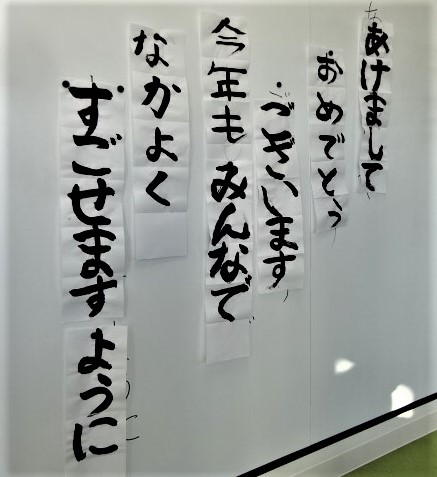 あけまして
おめでとう
ございします
今年もみんなで
なかよく
すごせますように